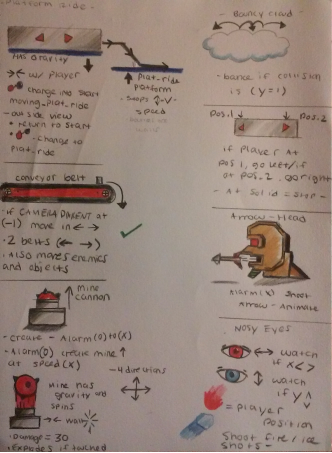 Platform Ride -
Has Gravity
w/ Player
Plat-ride
Platform
- Stops
Speed
change into start
moving_plat_ride
- outside view
• return to start
• change to
Plat-ride
conveyor belt
- if CAMERA PARENT at
(-1) move in ← →
- 2 belts (← →)
- Also moves enemies
and objects
mine
cannon
- create - Alarm(0) to (x)
- Alarm(0) create mine ↑
at speed (x)
- 4 directions
mine has
gravity and
spins
← wall
• Damage = 30
• Explodes if touched
- Bouncy cloud -
- bounce if collision
is (y=1)
Pos.1
Pos-2
if Player At
Pos 1, go left/if
at pos-2, go right
- At Solid = Stop -
Arrow - Head
Alarm(x) Shoot
Arrow - Animate
Nosy Eyes
↔ watch
if x < >
watch
if y
= player
position
Shoot fire/ice
shots -